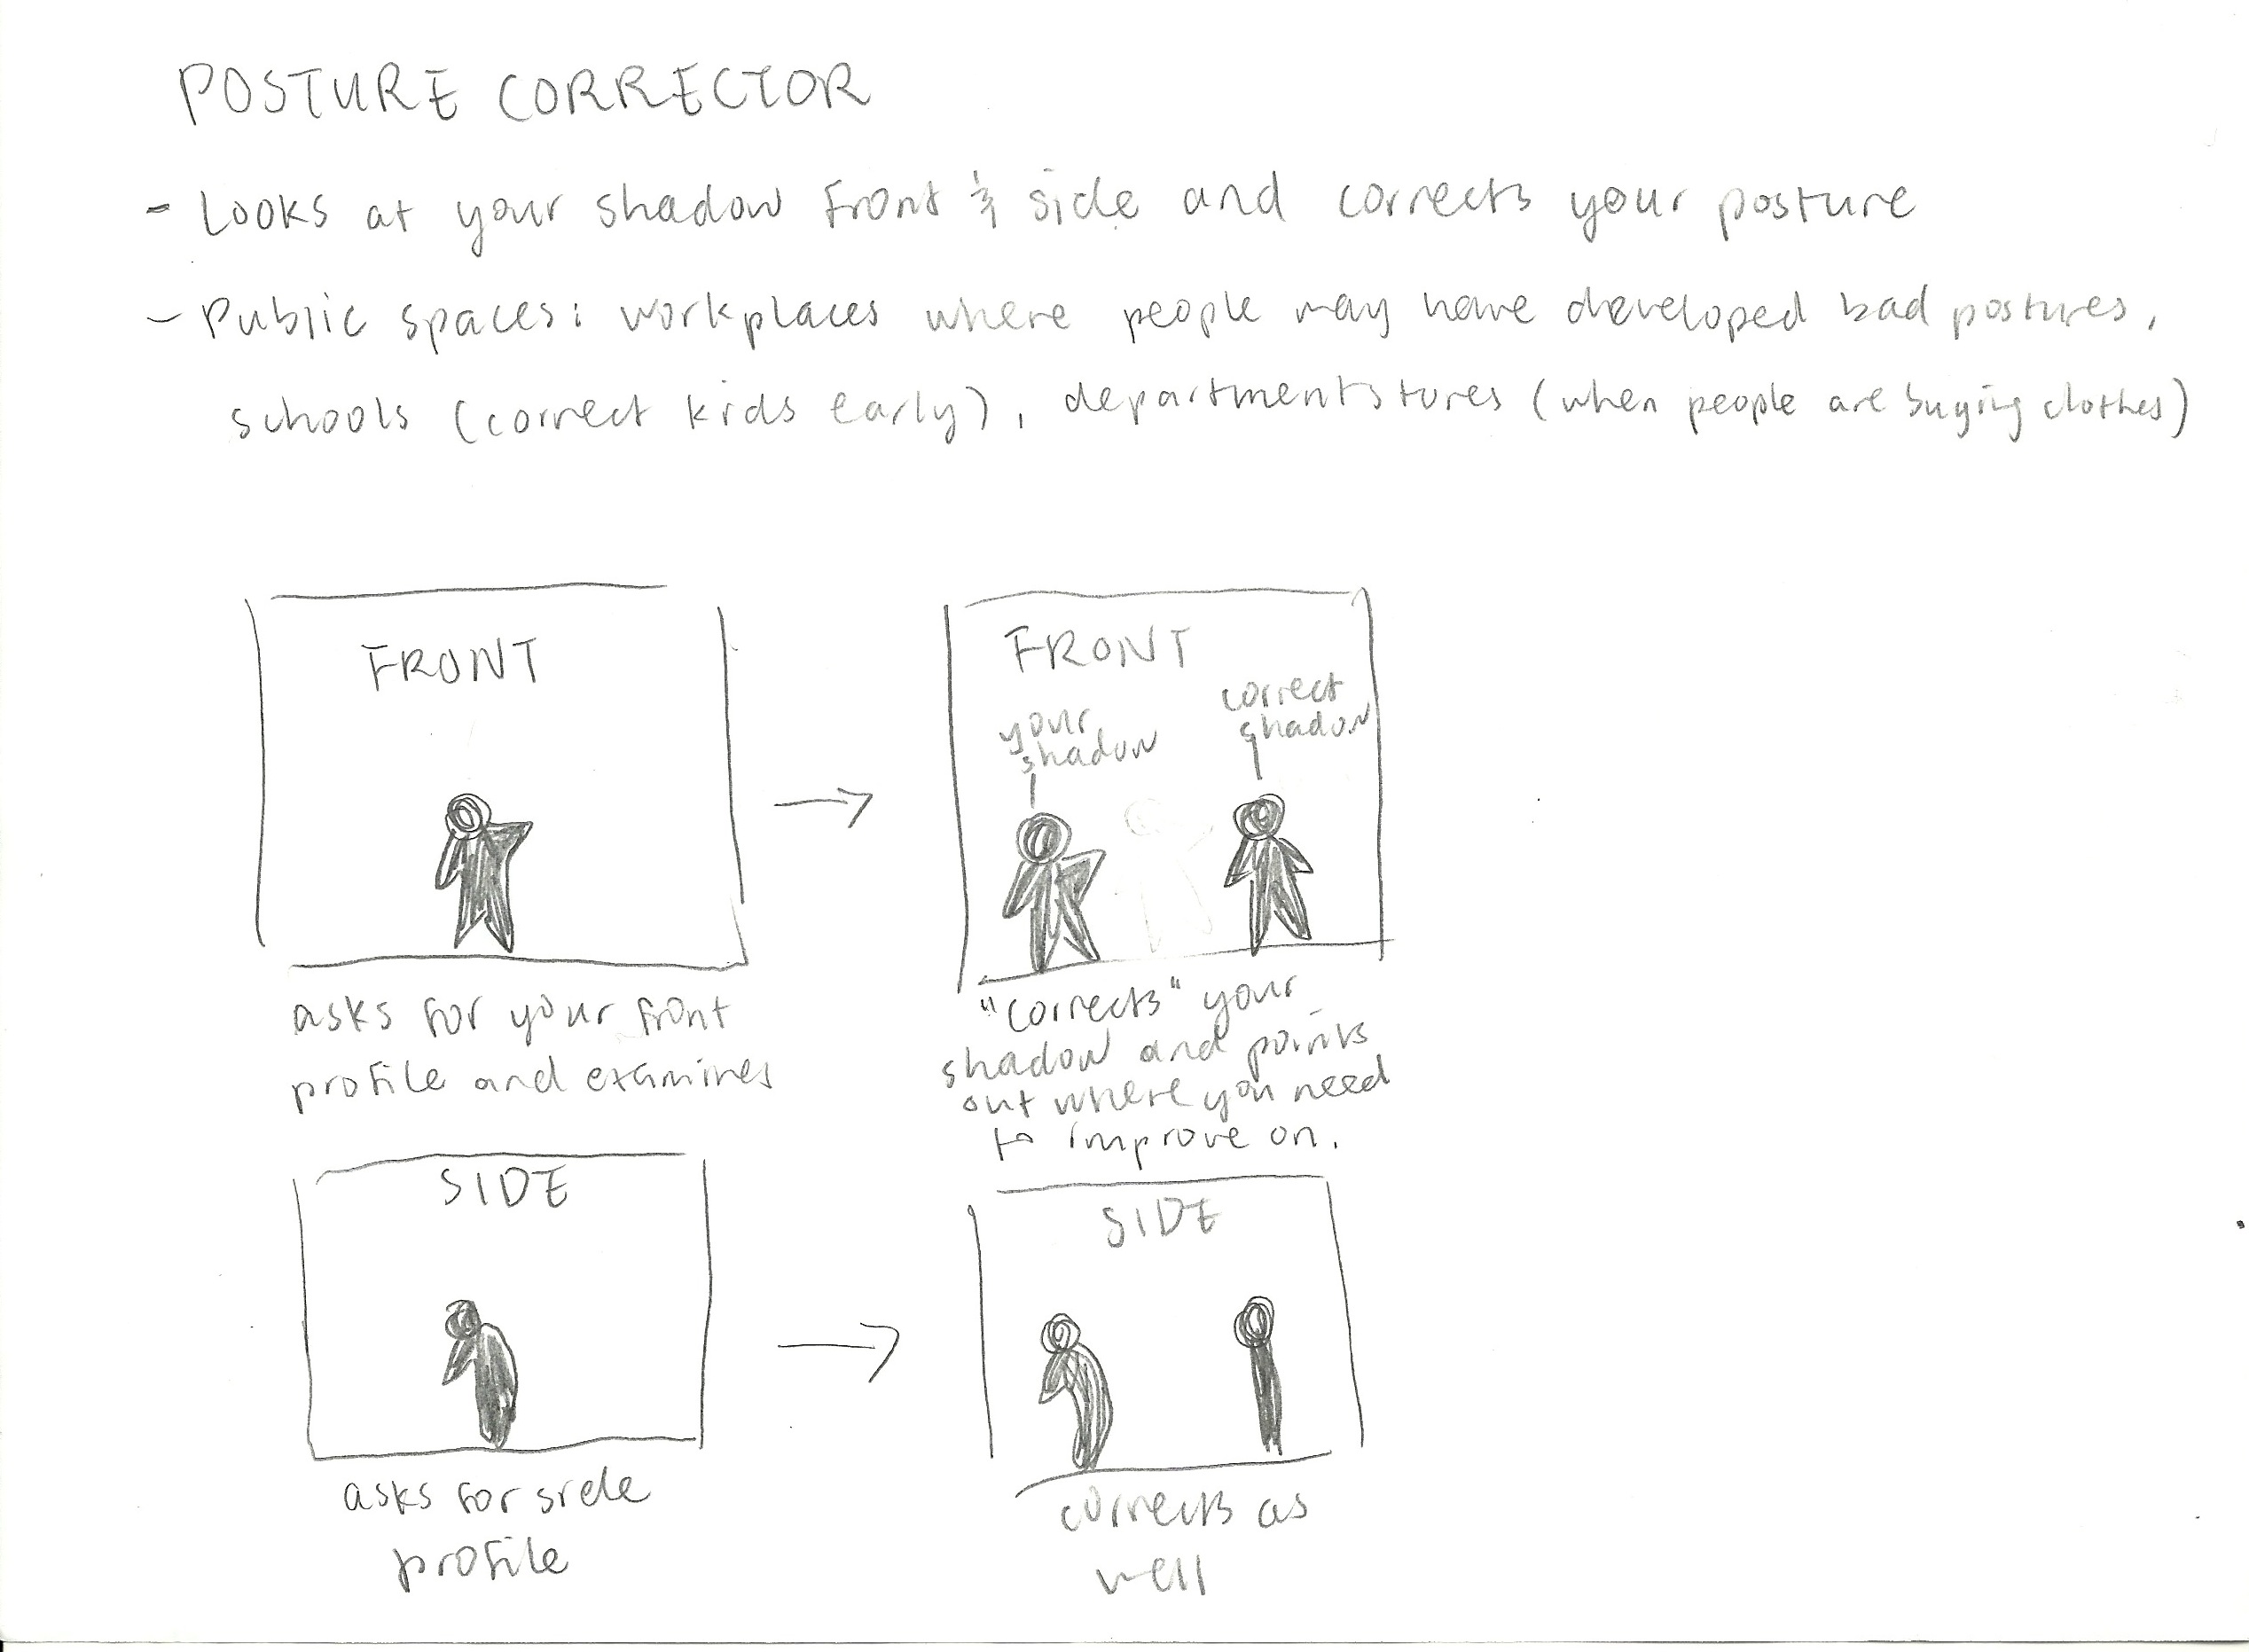 POSTURE CORRECTOR
- Looks at your shadow front & side and corrects your posture
- Public spaces: workplaces where people may have developed bad postures,
schools (correct kids early), department stores (when people are buying clothes)
FRONT
asks for your front
profile and examines
FRONT
your
shadow
correct
shadow
"corrects" your
shadow and points
out where you need
to improve on.
SIDE
asks for side
profile
SIDE
corrects as
well